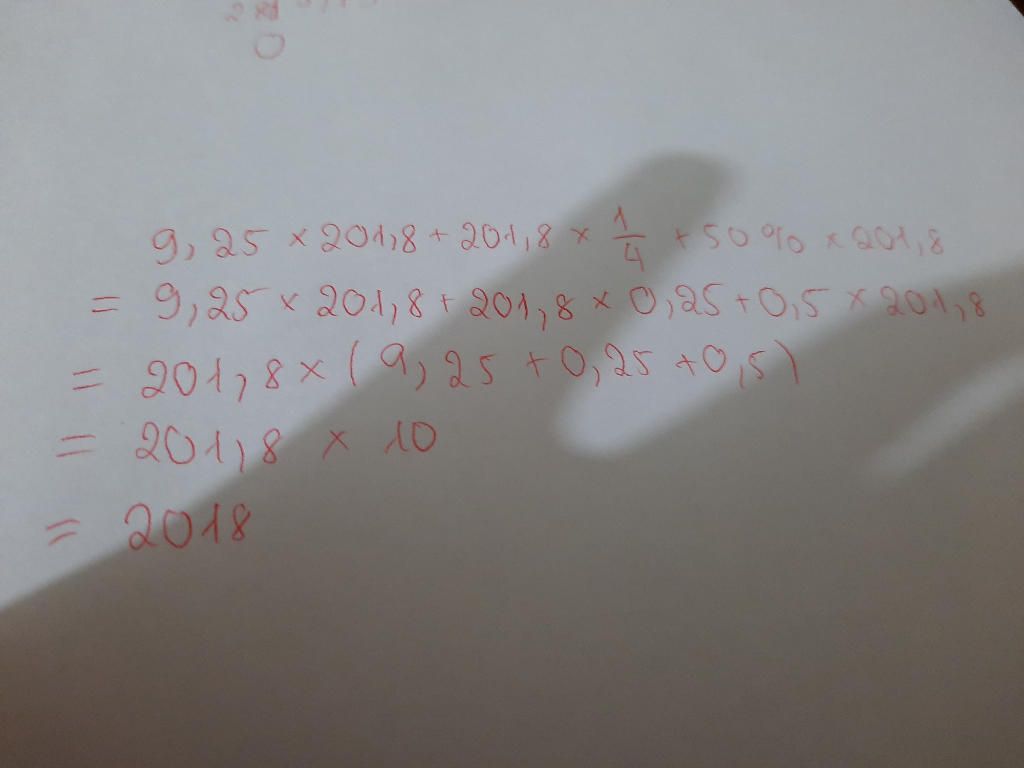 0
9,25 × 201,8 + 201,8 × 1/4 + 50% × 201,8
= 9,25 × 201,8 + 201,8 × 0,25 + 0,5 × 201,8
= 201,8 × ( 9, 25 + 0,25 + 0,5 )
= 201,8 × 10
= 2018